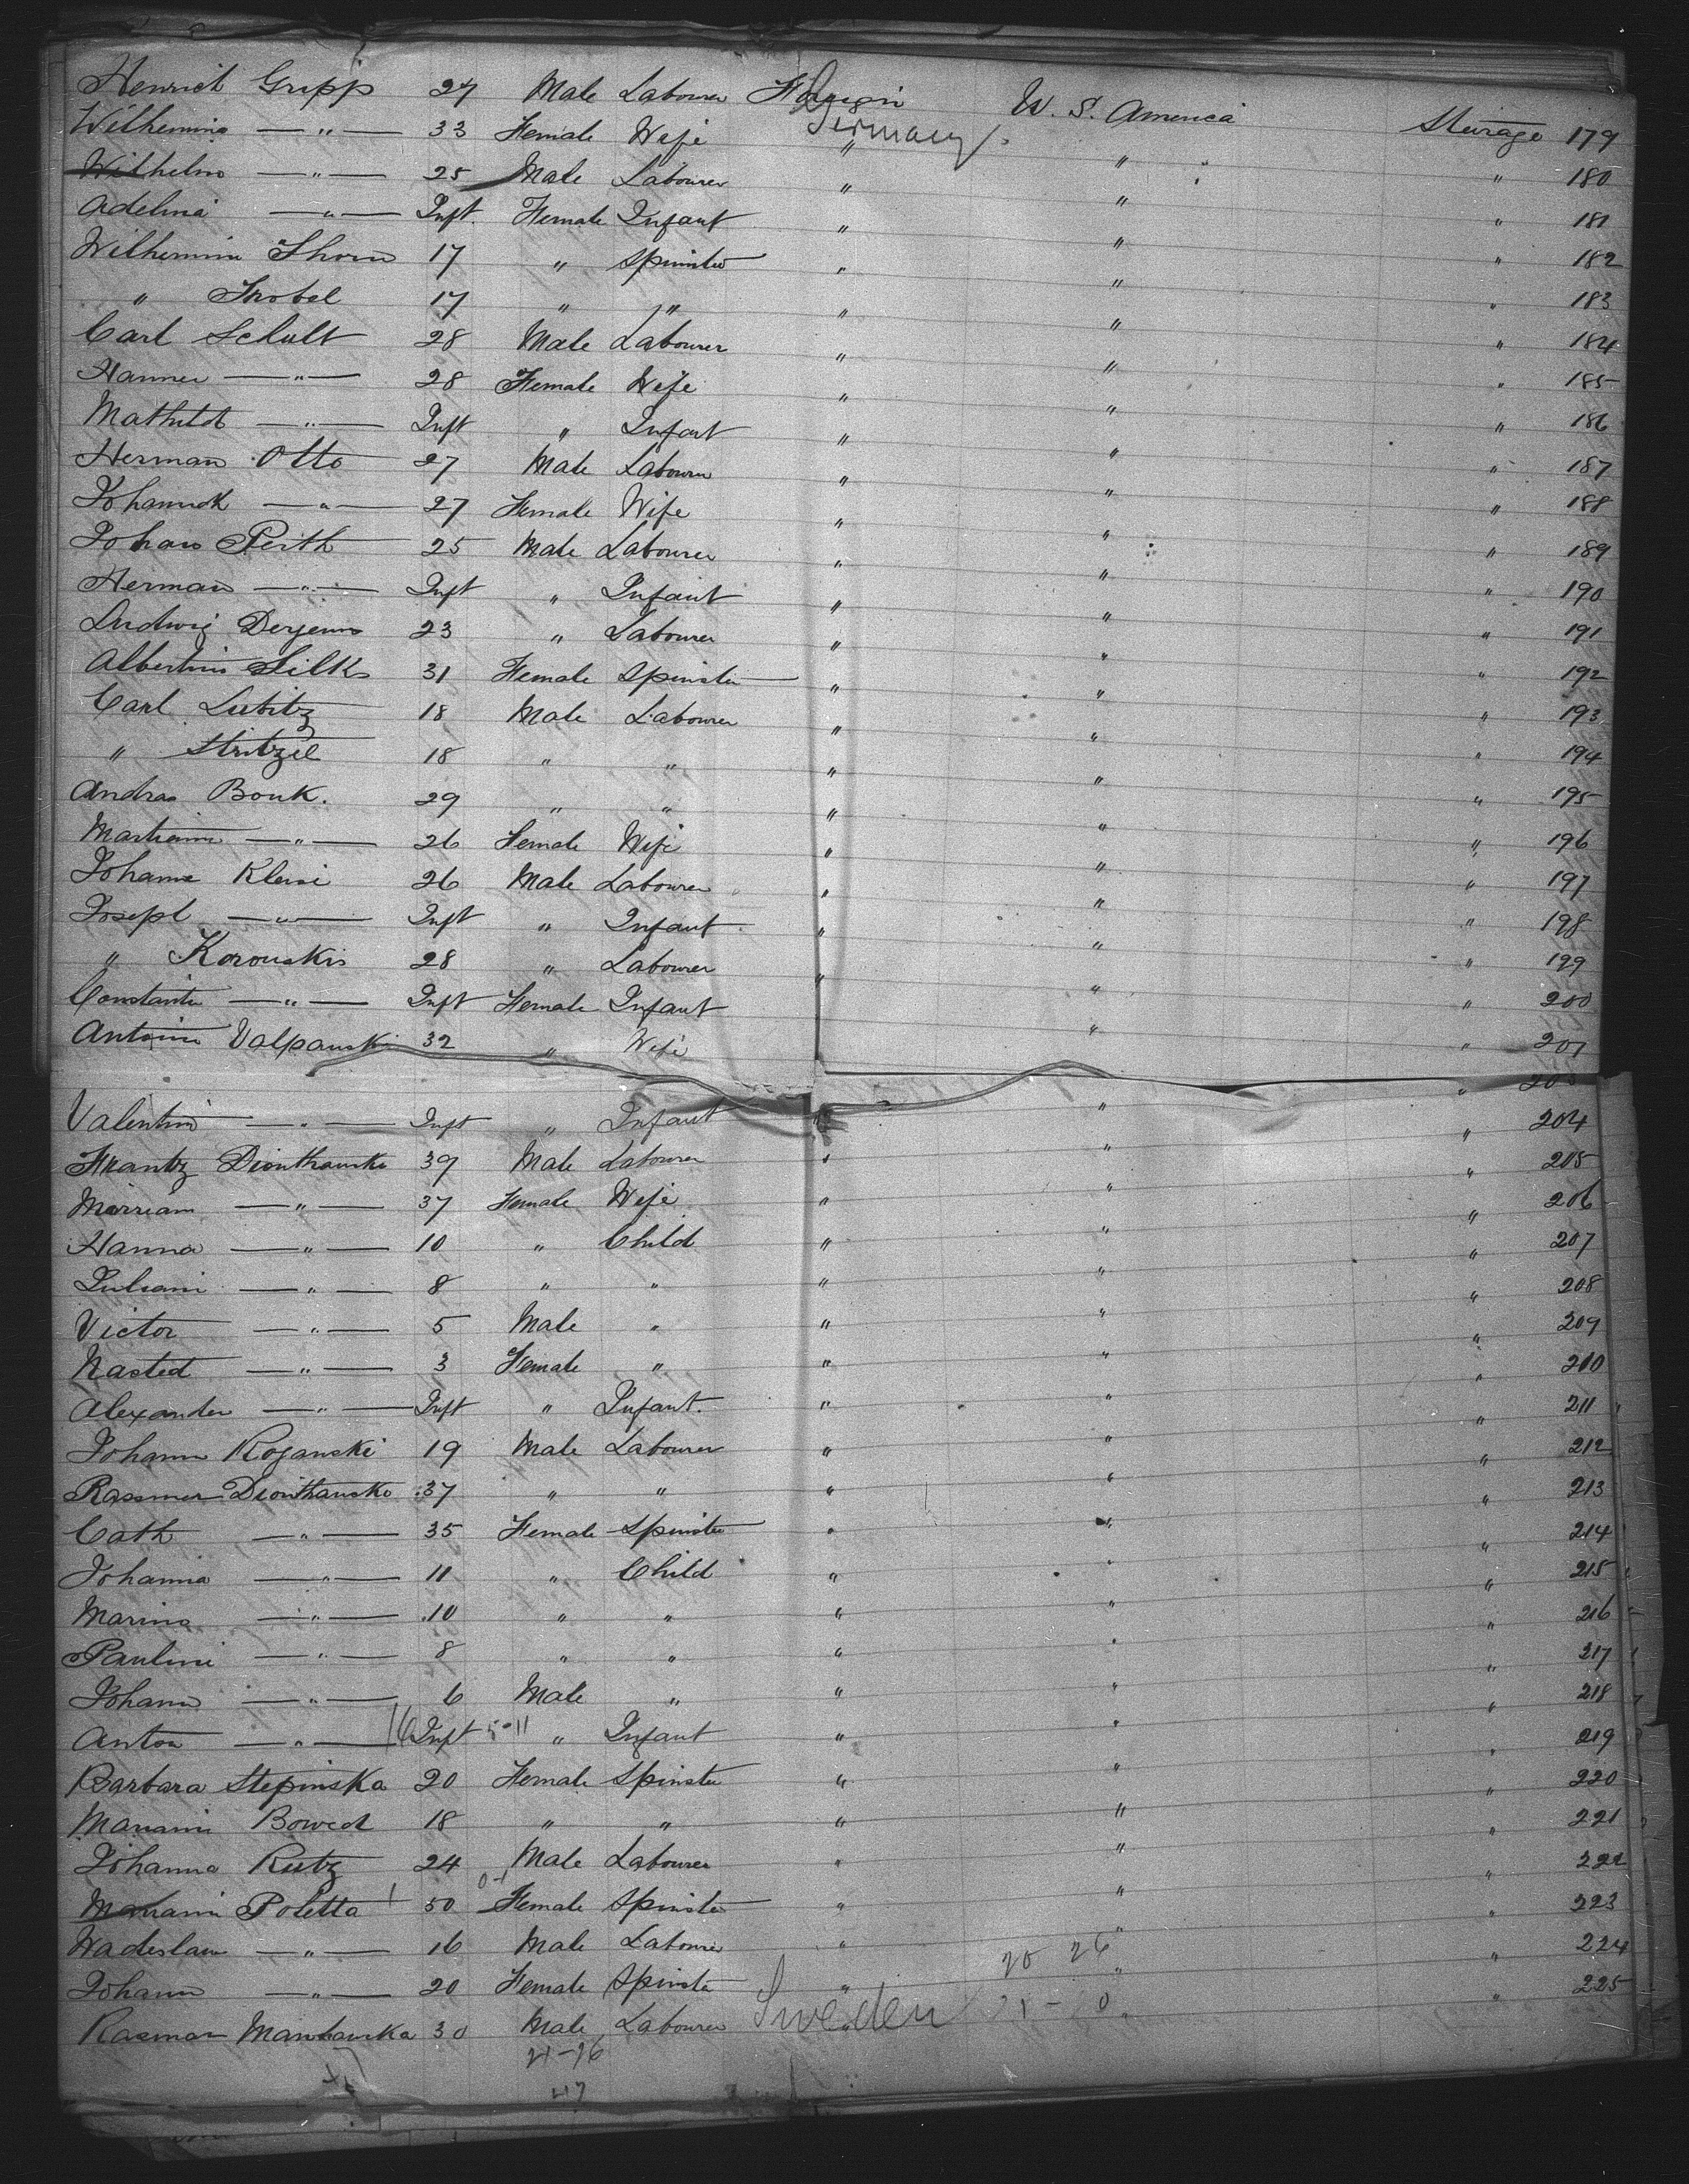 Henrich Gripp 27 Male Labourer Foreign Germany U. S. America Steirage 179
Wilhemine — " — 33 Female Wife " " " 180
Wilhelm — " — 25 Male Labourer " " " 181
Adelina — " — Inft. Female Infant " " " 182
Wilhemine Thorn 17 " Spinster " " " 183
" Strobel 17 " " " " " 184
Carl Schult 28 Male Labourer " " " 185
Hanner — " — 28 Female Wife " " " 186
Mathild — " — Inft " Infant " " " 187
Herman Otto 27 Male Labourer " " " 188
Johannah — " — 27 Female Wife " " " 189
Johan Perth 25 Male Labourer " " " 190
Herman — " — Inft " Infant " " " 191
Ludwig Derjenns 23 " Labourer " " " 192
Albertine Silks 31 Female Spinster " " " 193
Carl Lubitz 18 Male Labourer " " " 194
" Stritzel 18 " " " " " 195
Andras Bonk. 29 " " " " " 196
Martienne — " — 26 Female Wife " " " 197
Johanne Kleisi 26 Male Labourer " " " 198
Joseph — " — Inft " Infant " " " 199
" Korouskis 28 " Labourer " " " 200
Constantin — " — Inft Female Infant " " " 201
Antonin Valpauski 32 " Wife " "
Valentin — " — Inft " Infant " " " 204
Frantz Dionthauske 39 Male Labourer " " " 205
Mirriam — " — 37 Female Wife " " " 206
Hanna — " — 10 " Child " " " 207
Juliani — " — 8 " " " " " 208
Victor — " — 5 Male " " " " 209
Nasted — " — 3 Female " " " " 210
Alexander — " — Inft " Infant. " " " 211
Johann Roganski 19 Male Labourer " " " 212
Rassmer Dionthauske 37 " " " " " 213
Cath — " — 35 Female Spinster " " " 214
Johanna — " — 11 " Child " " " 215
Marina — " — 10 " " " " " 216
Paulini — " — 8 " " " " " 217
Johann — " — 6 Male " " " " 218
Anton — " — 16 Inft 5-11 " Infant " " " 219
Barbara Stepinska 20 Female Spinster " " " 220
Mariami Bowed 18 " " " " " 221
Johanna Rutz 24 Male Labourer " " " 222
Mariami Poletta 50 Female Spinster " " " 223
Wadislaw — " — 16 Male Labourer " 20 26 " " 224
Johann — " — 20 Female Spinster " " " 225
Rasmar Manhauska 30 Male Labourer " Sweden "
21-26
47